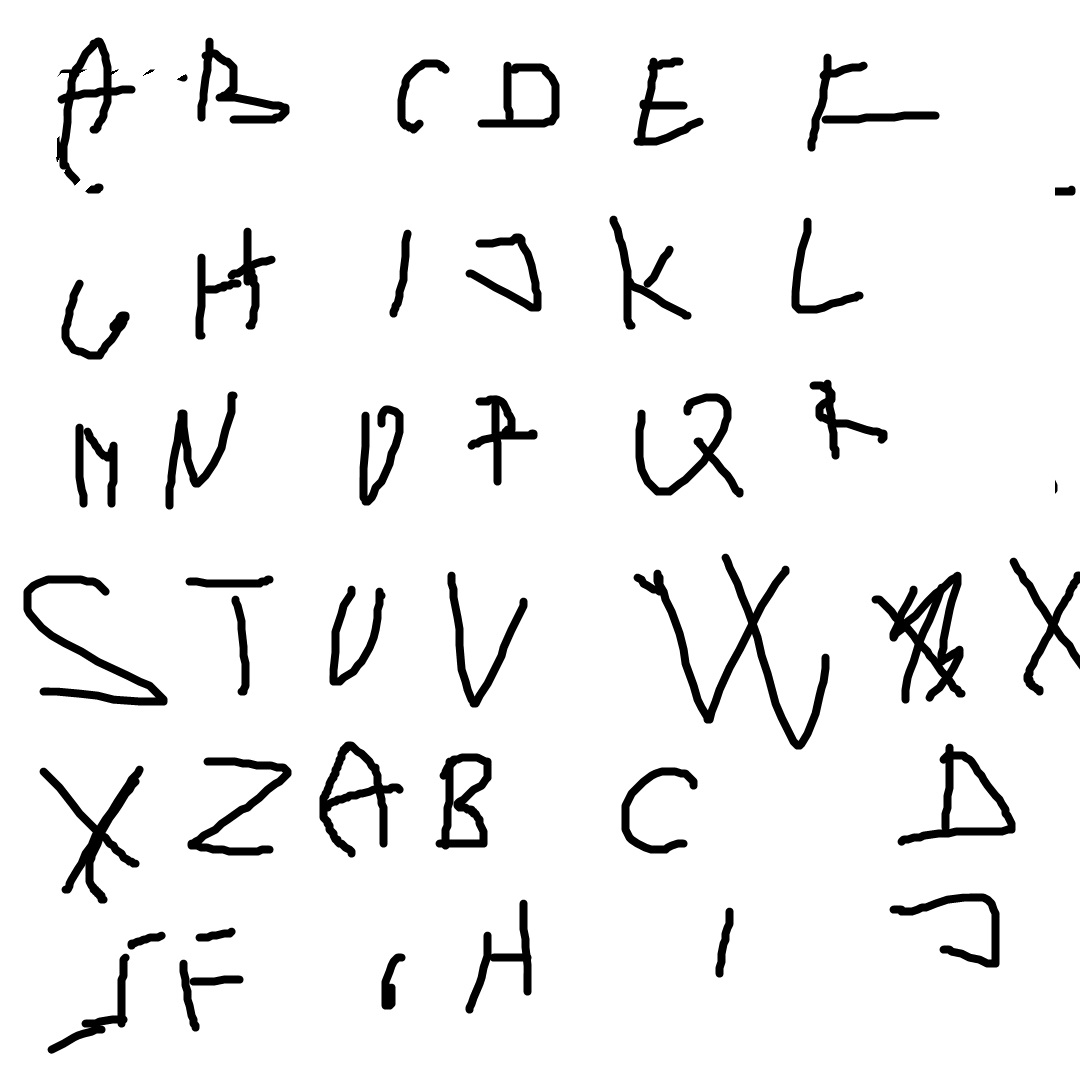 A B C D E F
G H I J K L
M N O P Q R
S T U V W X
Y Z A B C D
E F G H I J